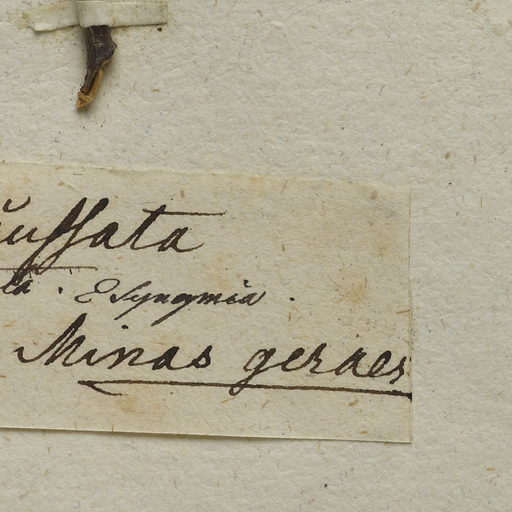 uffata
la. E Syngmia.
Minas geraes